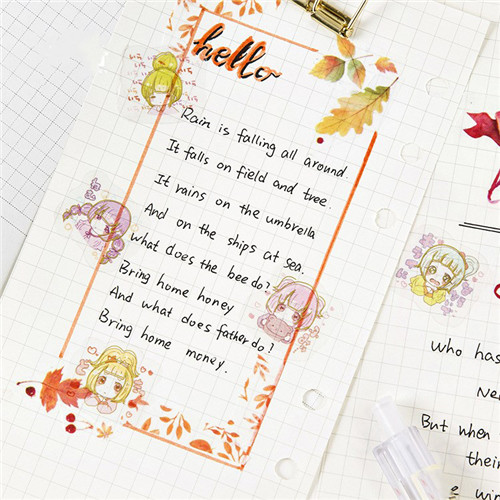 hello
Rain is falling all around.
It falls on field and tree.
It rains on the umbrella
And on the ships at sea.
what does the bee do?
Bring home honey
And what does father do?
Bring home money.
who has
But when
their